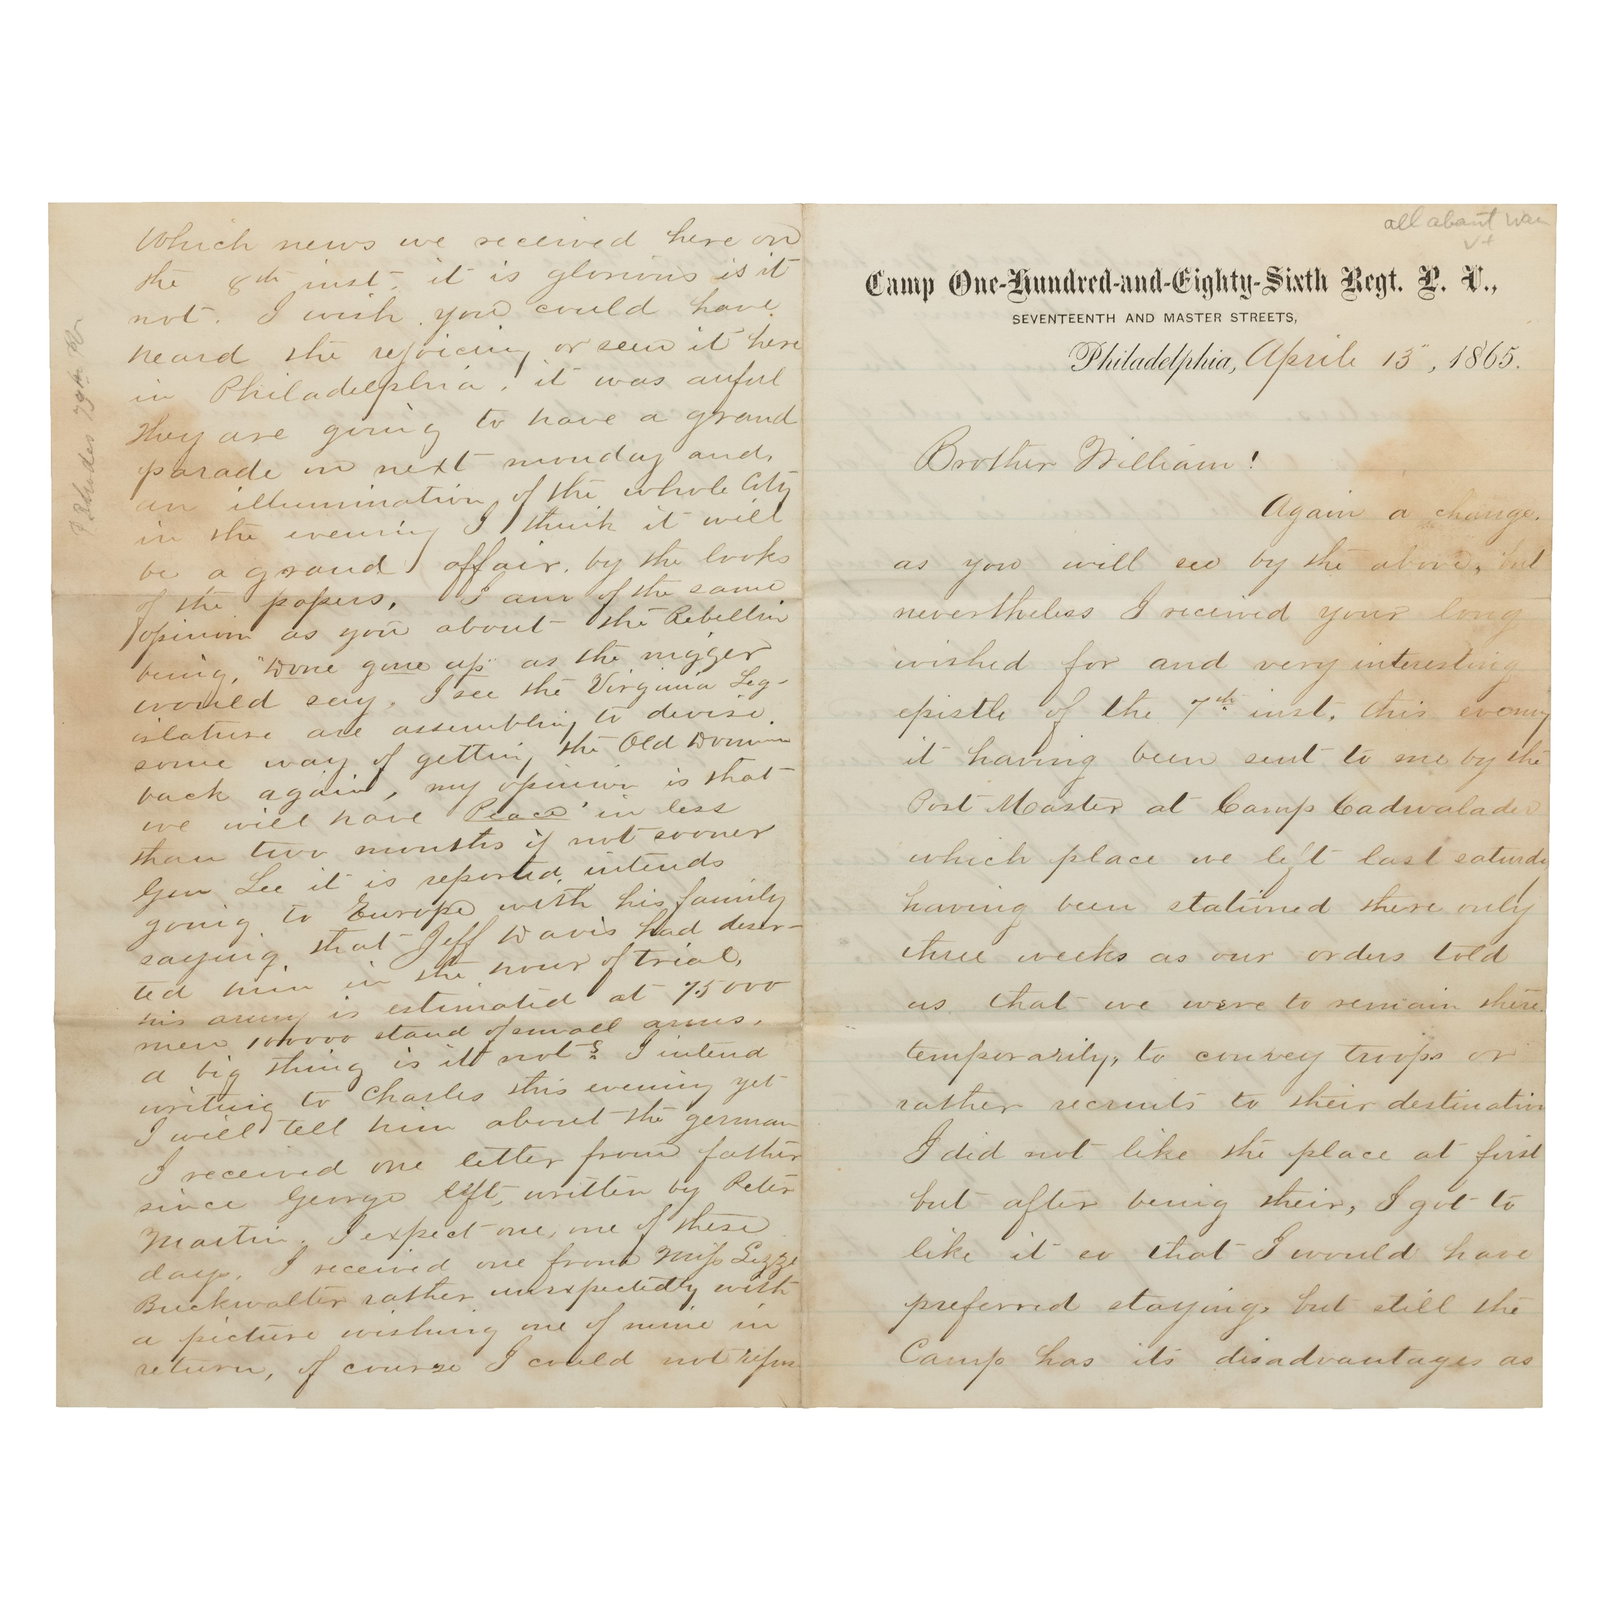 all about war
Camp One-Hundred-and-Eighty-Sixth Regt. P. V.,
SEVENTEENTH AND MASTER STREETS,
Philadelphia, Aprile 13", 1865.
Brother William!
Again a change,
as you will see by the above, but
nevertheless I received your long
wished for and very interesting
epistle of the 7th inst. this evening
it having been sent to me by the
Post Master at Camp Cadwalader
which place we left last saturday
having been stationed there only
three weeks as our orders told
us that we were to remain there
temporarily, to convey troops or
rather recruits to their destination
I did not like the place at first
but after being their, I got to
like it so that I would have
preferred staying, but still the
Camp has its disadvantages as
Which news we received here on
the 8th inst. it is glorious is it
not. I wish you could have
heard the rejoicing or seen it here
in Philadelphia! it was awful
they are going to have a grand
parade on next monday and
an illumination of the whole City
in the evening I think it will
be a grand affair. by the looks
of the papers, I am of the same
opinion as you about the Rebellion
being, "Done gone up" as the nigger
would say. I see the Virginia Leg-
islature are assembling to devise
some way of getting the Old Dominion
back again, my opinion is that
we will have Peace in less
than two months if not sooner
Gen Lee it is reported intends
going to Europe with his family
saying that Jeff Davis had deser-
ted him in the hour of trial,
his army is estimated at 75000
men 100000 stand of small arms.
a big thing is it not? I intend
writing to Charles this evening yet
I will tell him about the german
I received one letter from father
since George left, written by Peter
Martin. I expect one, one of these
days. I received one from Miss Lizzie
Buckwalter rather unexpectedly with
a picture wishing one of mine in
return, of course I could not refuse